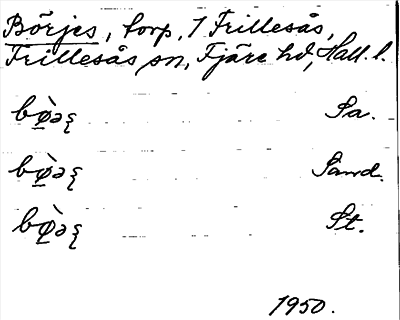 Börjes, torp, 1 Frillesås,
Frillesås sn, Fjäre hd, Hall. l.
bø̀əꞩ Sa.
bø̀əꞩ Sand.
bø̀əꞩ St.
1950.